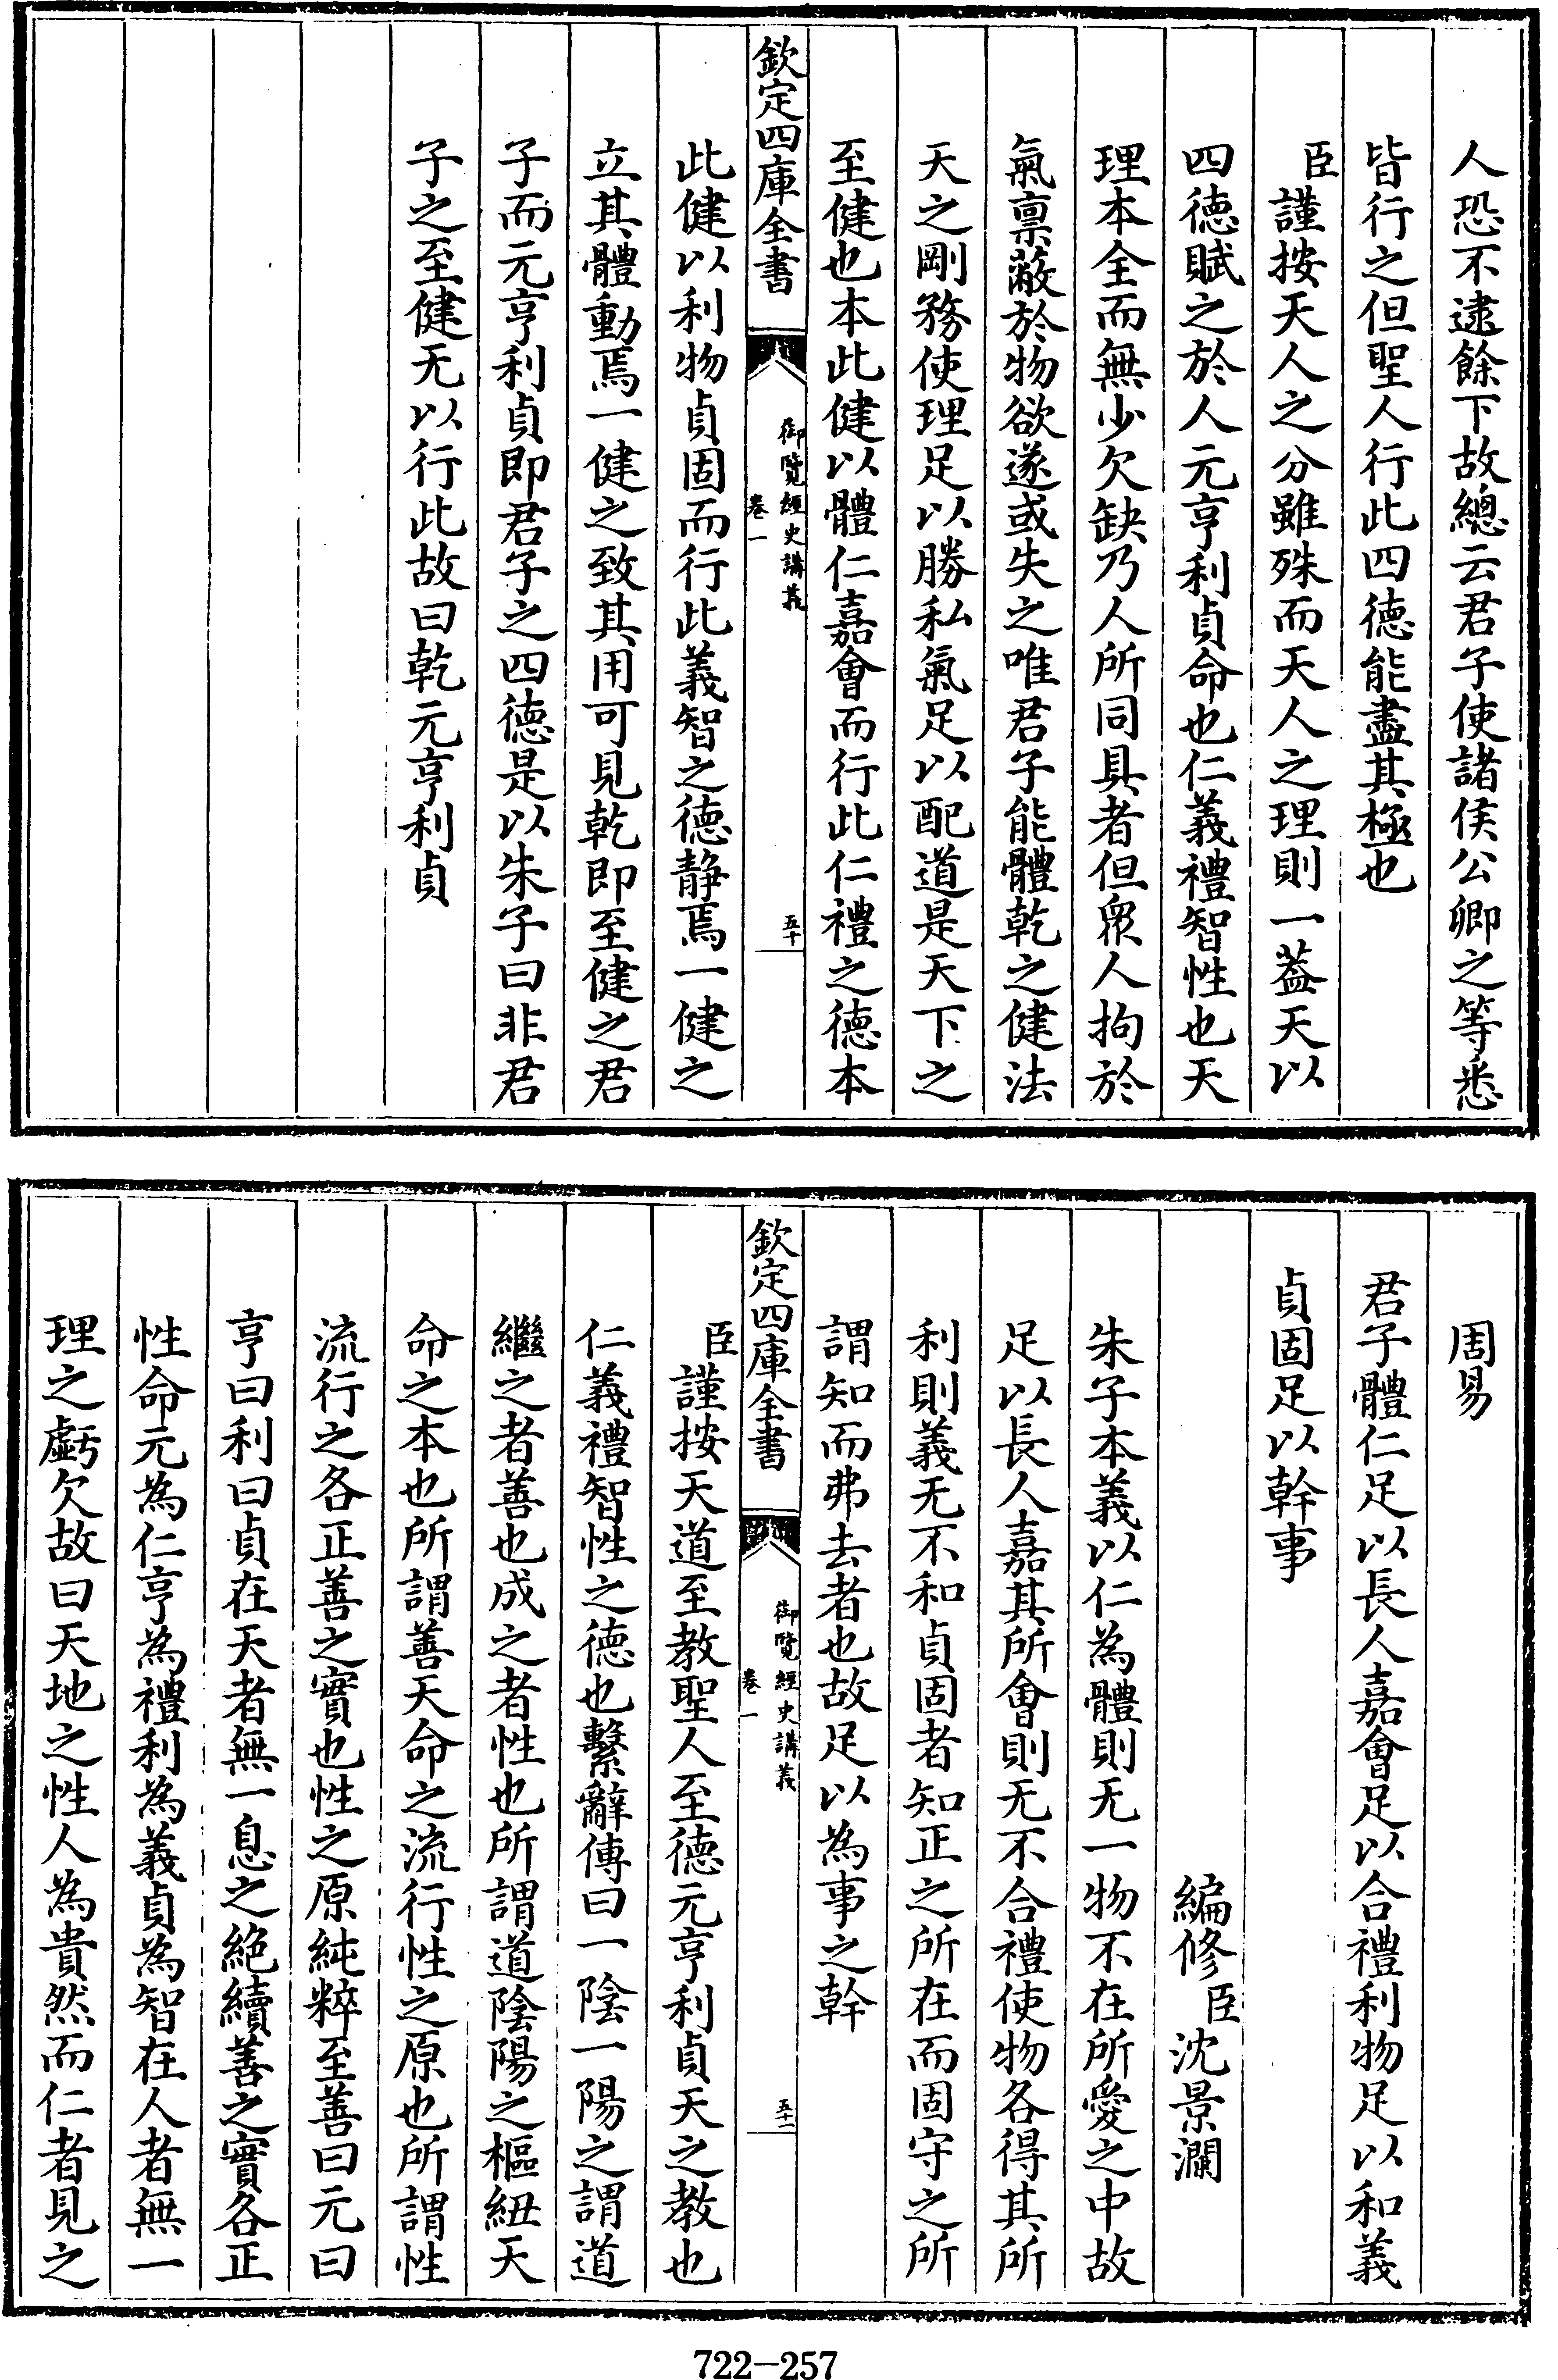 人恐不逮餘下故總云君子使諸侯公卿之等悉
皆行之但聖人行此四德能盡其極也
臣謹按天人之分雖殊而天人之理則一葢天以
四德賦之於人元亨利貞命也仁義禮智性也天
理本全而無少欠缺乃人所同具者但衆人拘於
氣禀蔽於物欲遂或失之唯君子能體乾之健法
天之剛務使理足以勝私氣足以配道是天下之
至健也本此健以體仁嘉會而行此仁禮之德本
欽定四庫全書
御覽經史講義
卷一
五十
此健以利物貞固而行此義智之德静焉一健之
立其體動焉一健之致其用可見乾即至健之君
子而元亨利貞即君子之四德是以朱子曰非君
子之至健无以行此故曰乾元亨利貞
周易
君子體仁足以長人嘉會足以合禮利物足以和義
貞固足以幹事
編修臣沈景瀾
朱子本義以仁為體則无一物不在所愛之中故
足以長人嘉其所會則无不合禮使物各得其所
利則義无不和貞固者知正之所在而固守之所
謂知而弗去者也故足以為事之幹
欽定四庫全書
御覽經史講義
卷一
五十一
臣謹按天道至教聖人至德元亨利貞天之教也
仁義禮智性之德也繫辭傳曰一陰一陽之謂道
繼之者善也成之者性也所謂道陰陽之樞紐天
命之本也所謂善天命之流行性之原也所謂性
流行之各正善之實也性之原純粹至善曰元曰
亨曰利曰貞在天者無一息之絶續善之實各正
性命元為仁亨為禮利為義貞為智在人者無一
理之虧欠故曰天地之性人為貴然而仁者見之
722-257